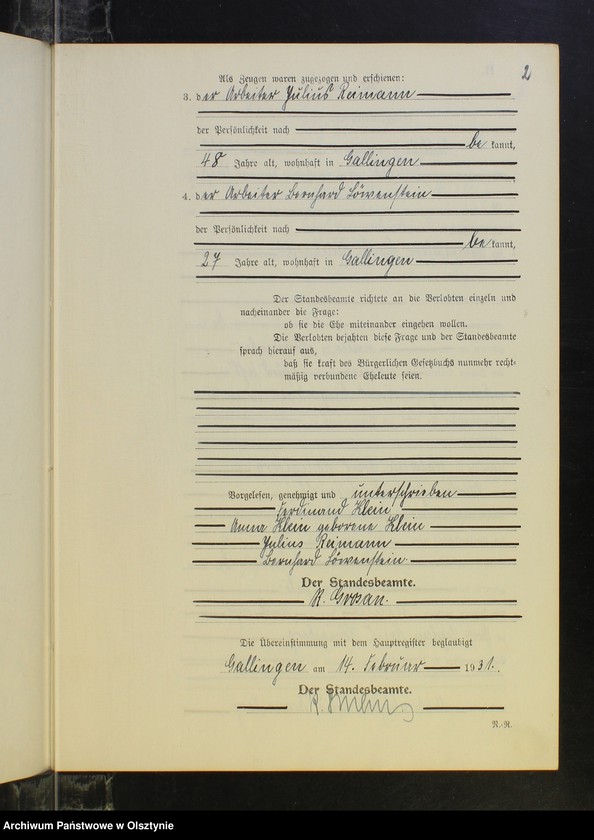 2
Als Zeugen waren zugezogen und erschienen:
3. der Arbeiter Julius Reimann
der Persönlichkeit nach
be kannt,
48 Jahre alt, wohnhaft in Gallingen
4. der Arbeiter Bernhard Löwenstein
der Persönlichkeit nach
be kannt,
27 Jahre alt, wohnhaft in Gallingen
Der Standesbeamte richtete an die Verlobten einzeln und
nacheinander die Frage:
ob sie die Ehe miteinander eingehen wollen.
Die Verlobten bejahten diese Frage und der Standesbeamte
sprach hierauf aus,
daß sie kraft des Bürgerlichen Gesetzbuchs nunmehr recht-
mäßig verbundene Eheleute seien.
Vorgelesen, genehmigt und unterschrieben
Ferdinand Klein
Anna Klein geborene Klein
Julius Reimann
Bernhard Löwenstein.
Der Standesbeamte.
R.
Die Übereinstimmung mit dem Hauptregister beglaubigt
Gallingen am 14. Februar 1931.
Der Standesbeamte.
N.-R.
Archiwum Państwowe w Olsztynie